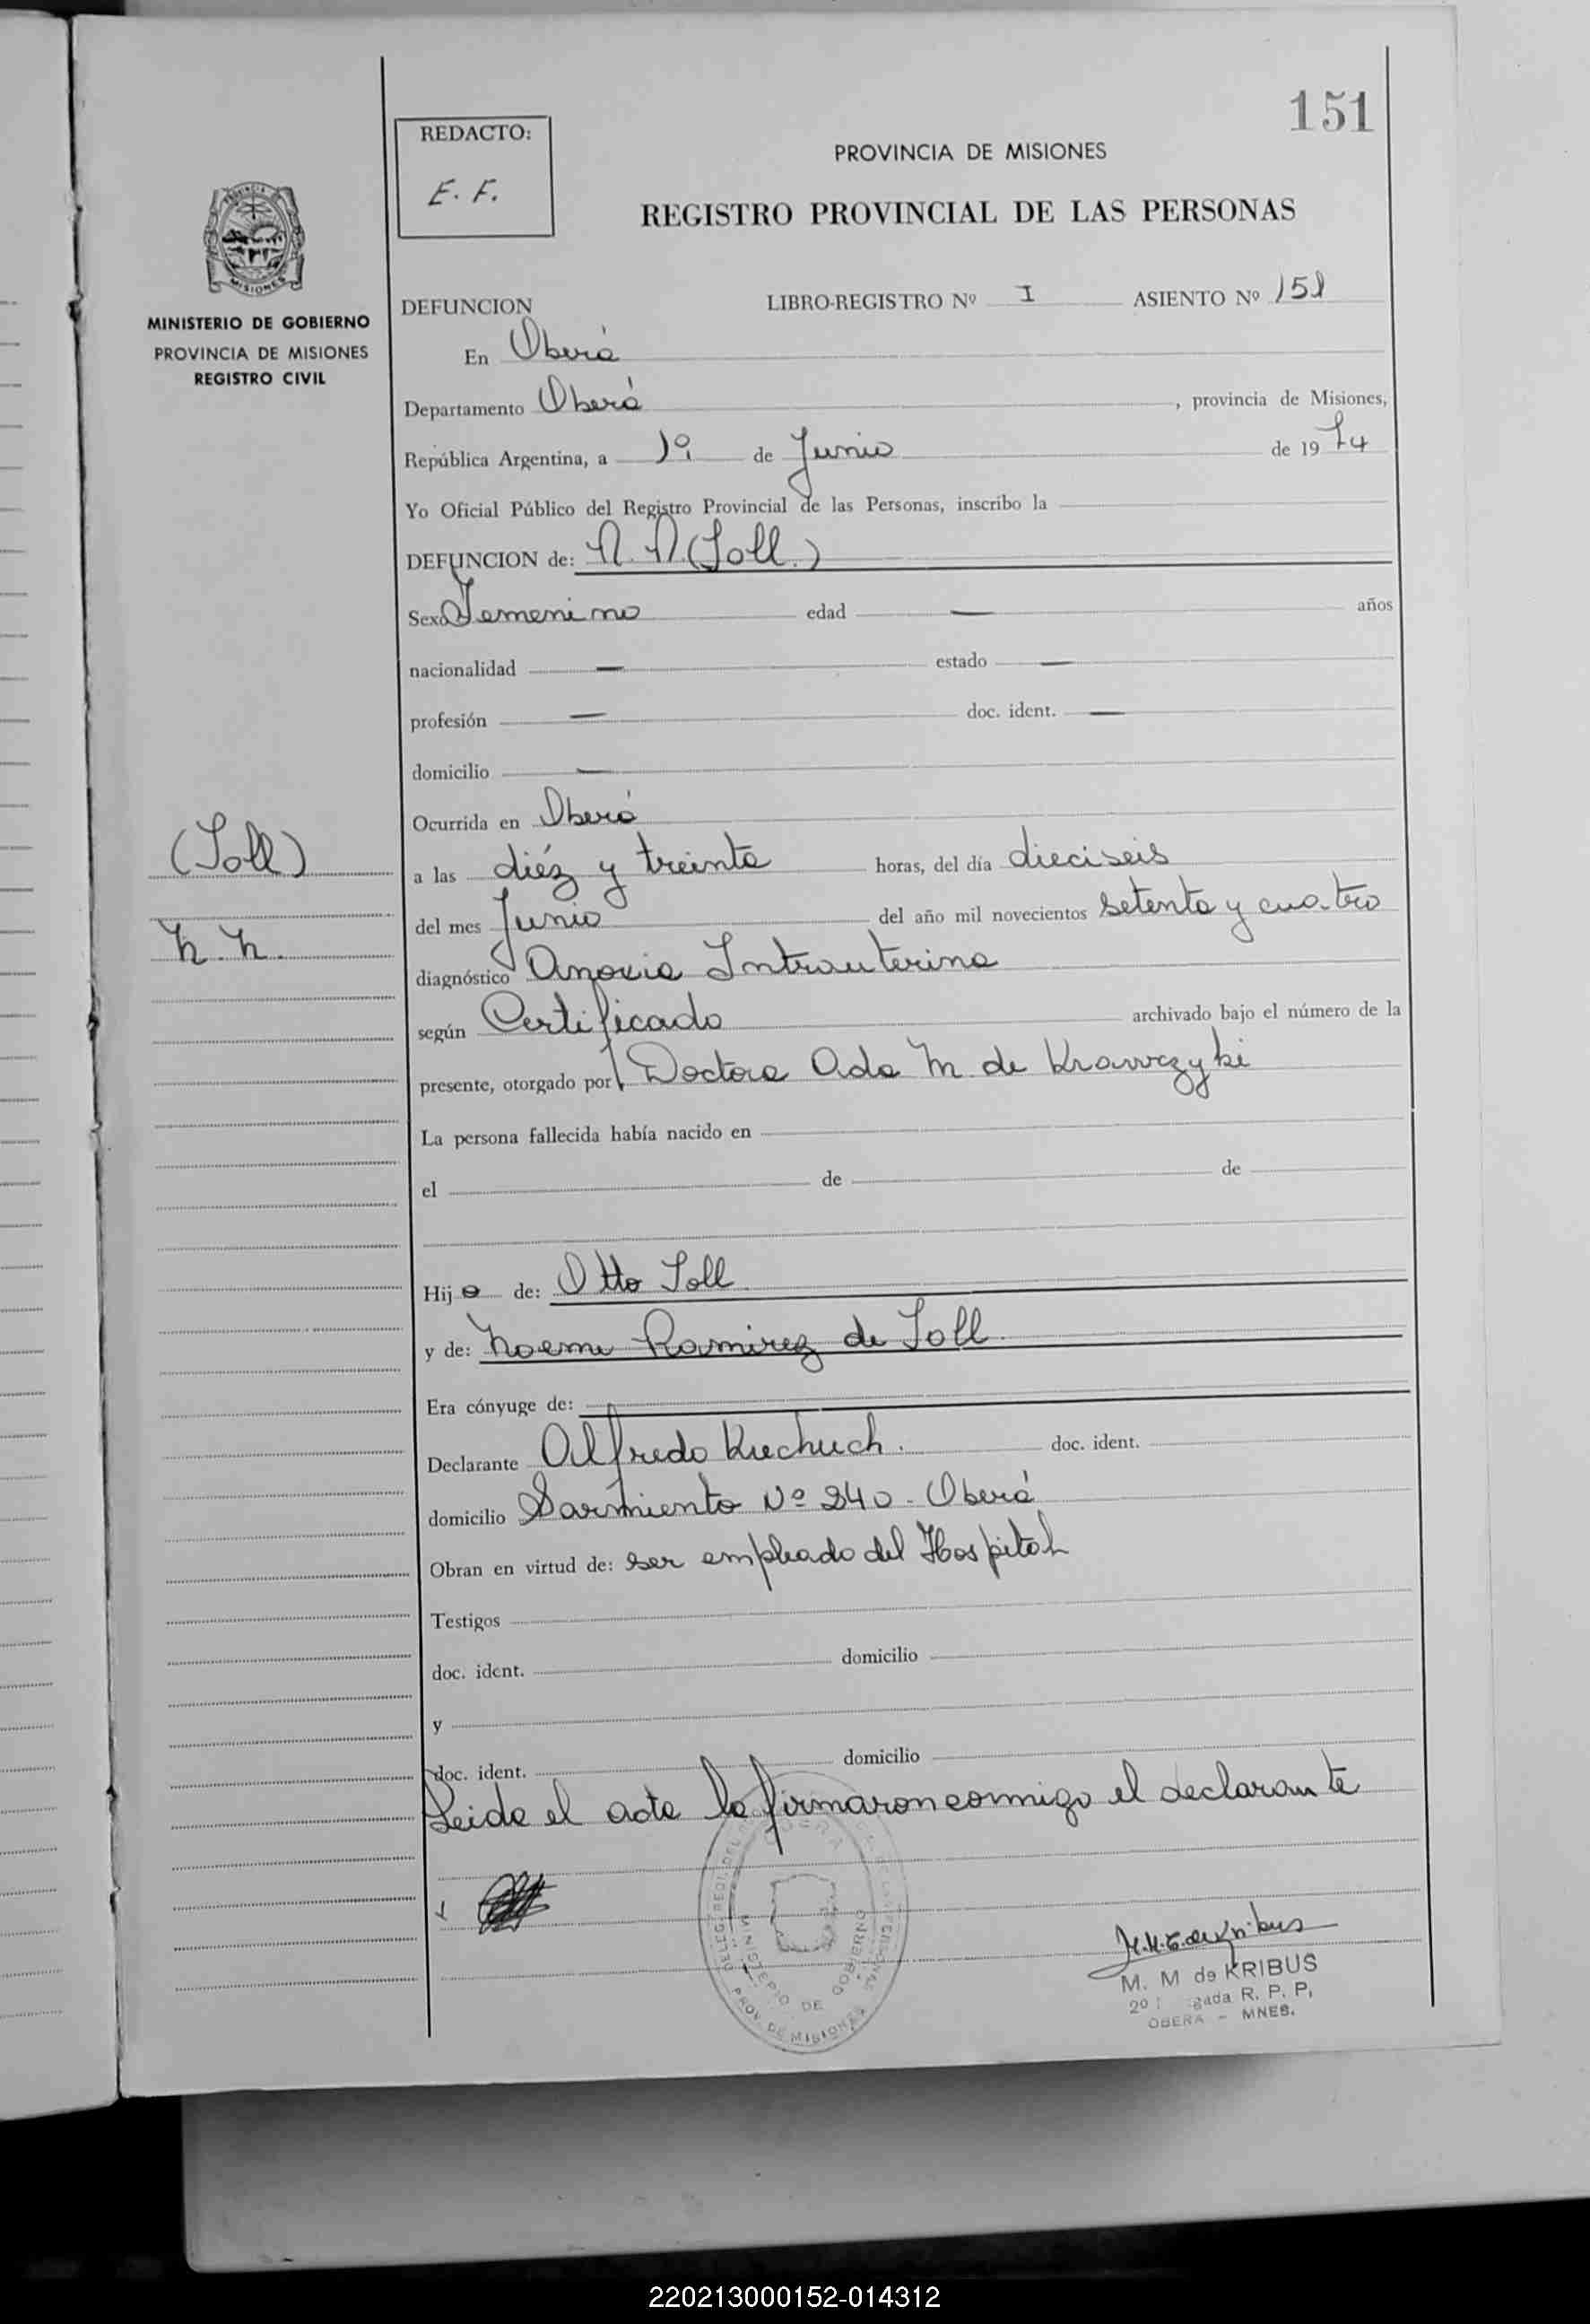 151
REDACTO:
E. F.
PROVINCIA DE MISIONES
REGISTRO PROVINCIAL DE LAS PERSONAS
PROVINCIA
MISIONES
MINISTERIO DE GOBIERNO
PROVINCIA DE MISIONES
REGISTRO CIVIL
DEFUNCION LIBRO-REGISTRO Nº I ASIENTO Nº 151
En Oberá
Departamento Oberá, provincia de Misiones,
República Argentina, a 1º de Junio de 1974
Yo Oficial Público del Registro Provincial de las Personas, inscribo la
DEFUNCION de: N. N. (Soll.)
Sexo Femenino edad — años
nacionalidad — estado —
profesión — doc. ident. —
domicilio —
Ocurrida en Oberá
(Soll)
N. N.
a las diéz y treinta horas, del día dieciseis
del mes Junio del año mil novecientos setenta y cuatro
diagnóstico Anoxia Intrauterina
según Certificado archivado bajo el número de la
presente, otorgado por Doctora Ada M. de Krawczyki
La persona fallecida había nacido en
el de de
Hijo de: Otto Soll
y de: Noemi Ramirez de Soll.
Era cónyuge de:
Declarante Alfredo doc. ident.
domicilio Sarmiento Nº 240 - Oberá
Obran en virtud de: ser empleado del Hospital
Testigos
doc. ident. domicilio
y
doc. ident. domicilio
Leida el acta la firmaron conmigo el declarante
OBERA
MINISTERIO DE GOBIERNO
PROV. DE MISIONES
M. M de KRIBUS
R. P. P.
OBERA - MNES.
220213000152-014312